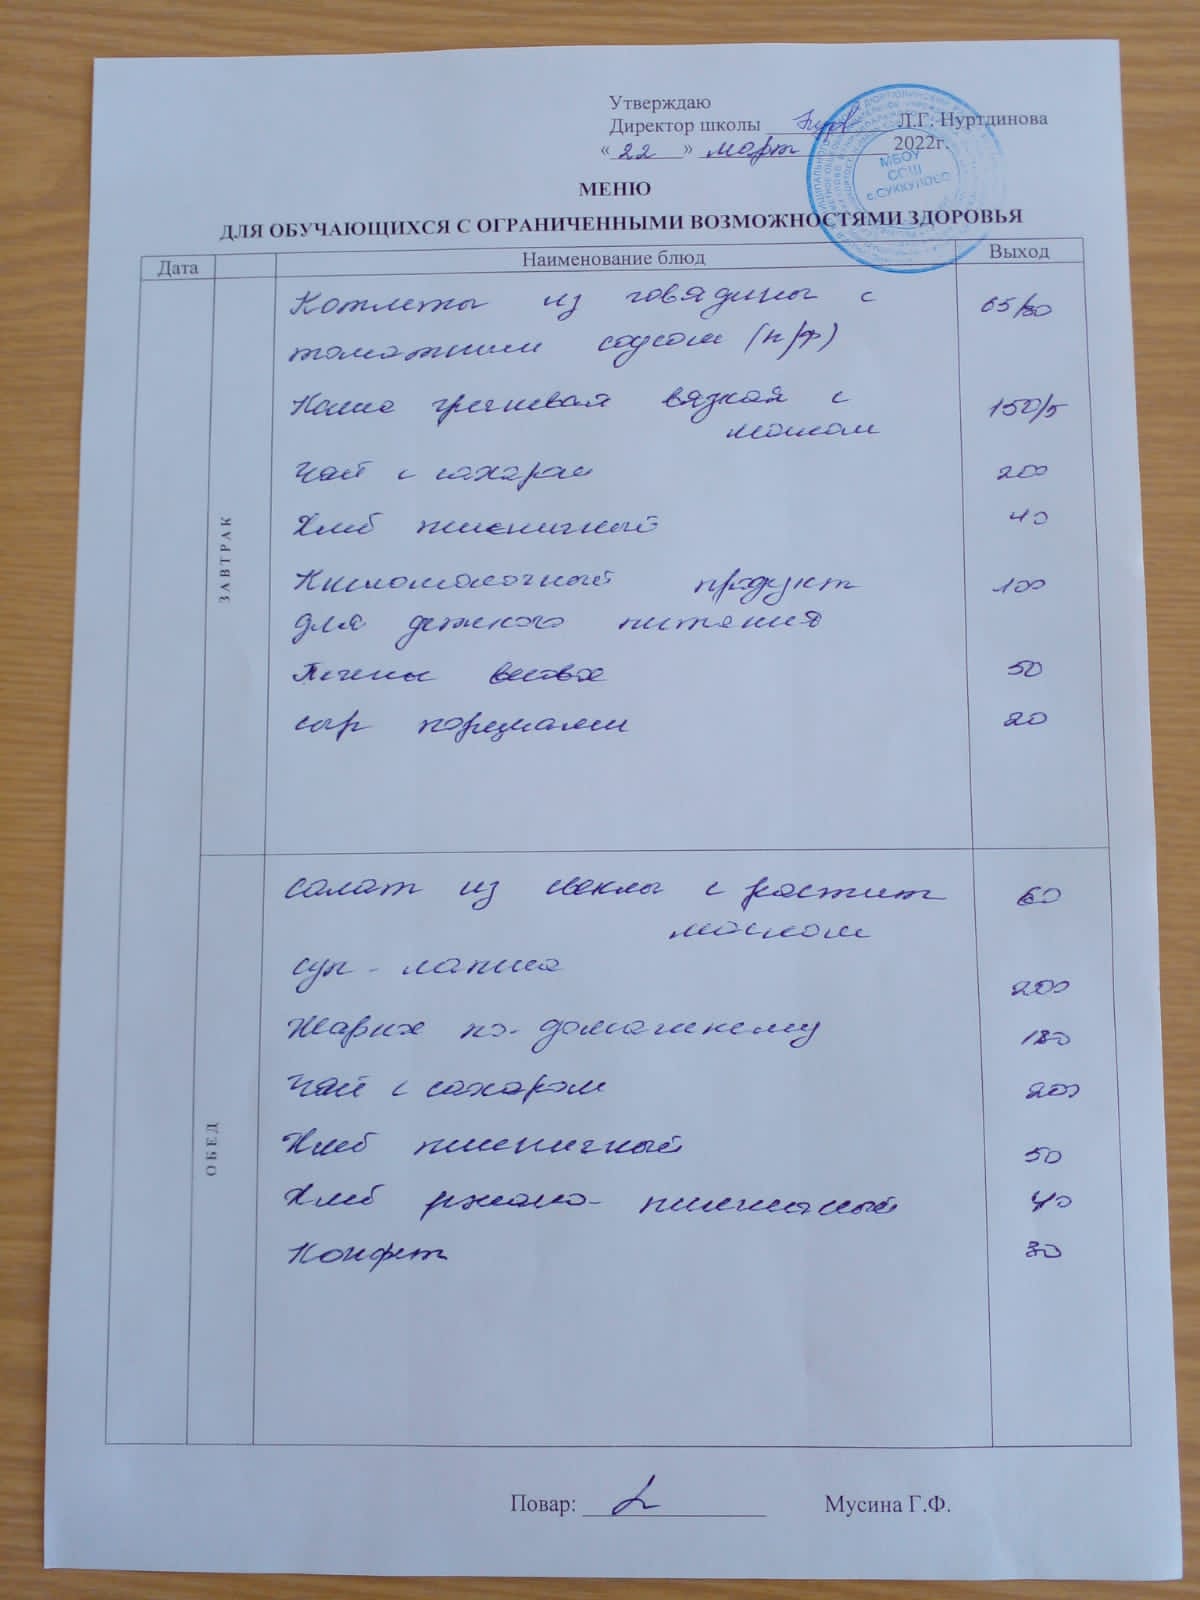 Утверждаю
Директор школы Л.Г. Нуртдинова
« 22 » март 2022г.
МБОУ
СОШ
с.СУККУЛОВО
МЕНЮ
ДЛЯ ОБУЧАЮЩИХСЯ С ОГРАНИЧЕННЫМИ ВОЗМОЖНОСТЯМИ ЗДОРОВЬЯ
Дата Наименование блюд Выход
ЗАВТРАК
Котлеты из говядины с 65/30
томатным соусом (п/ф)
Каша гречневая вязкая с 150/5
маслом
Чай с сахаром 200
Хлеб пшеничный 40
Кисломолочный продукт 100
для детского питания
50
сыр порциями 20
ОБЕД
салат из свеклы с растит 60
маслом
суп - лапша 200
Жаркое по-домашнему 180
Чай с сахаром 200
Хлеб пшеничный 50
Хлеб ржано-пшеничный 40
Конфет 30
Повар: Мусина Г.Ф.